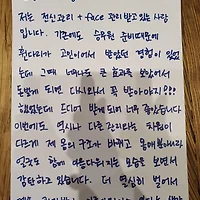 저는 전신관리 + face 관리 받고 있는 사람
입니다. 기존에도 승무원 준비때문에
휜다리가 고민이어서 받았던 경험이 있었
는데 그때 너무나도 큰 효과를 보았어서
돈벌게 되면 다시와서 꼭 받아야지!???
했었는데 드디어 받게되어 너무 좋았습니다
이번에도 역시나 다른 관리와는 차원이
다르게 제 몸의 구조가 바뀌고
얼굴도 함께 아름다워지는 모습을 보면서
감탄하고 있습니다. 더 열심히 벌어서